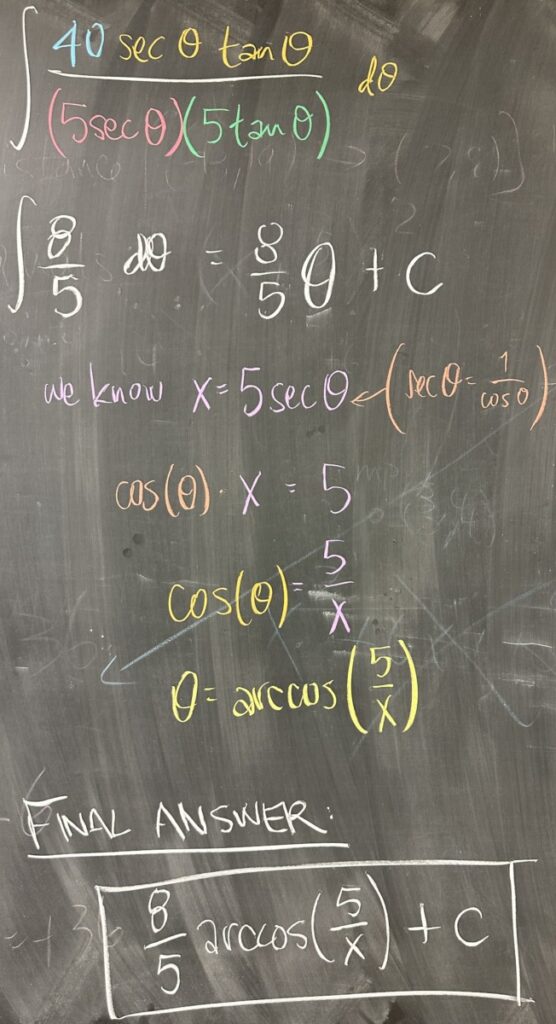 ∫ 40 sec θ tan θ / (5 sec θ)(5 tan θ) dθ
∫ 8/5 dθ = 8/5 θ + C
we know x = 5 sec θ ← (sec θ = 1/cos θ)
cos(θ) · x = 5
cos(θ) = 5/x
θ = arccos(5/x)
FINAL ANSWER:
8/5 arccos(5/x) + C